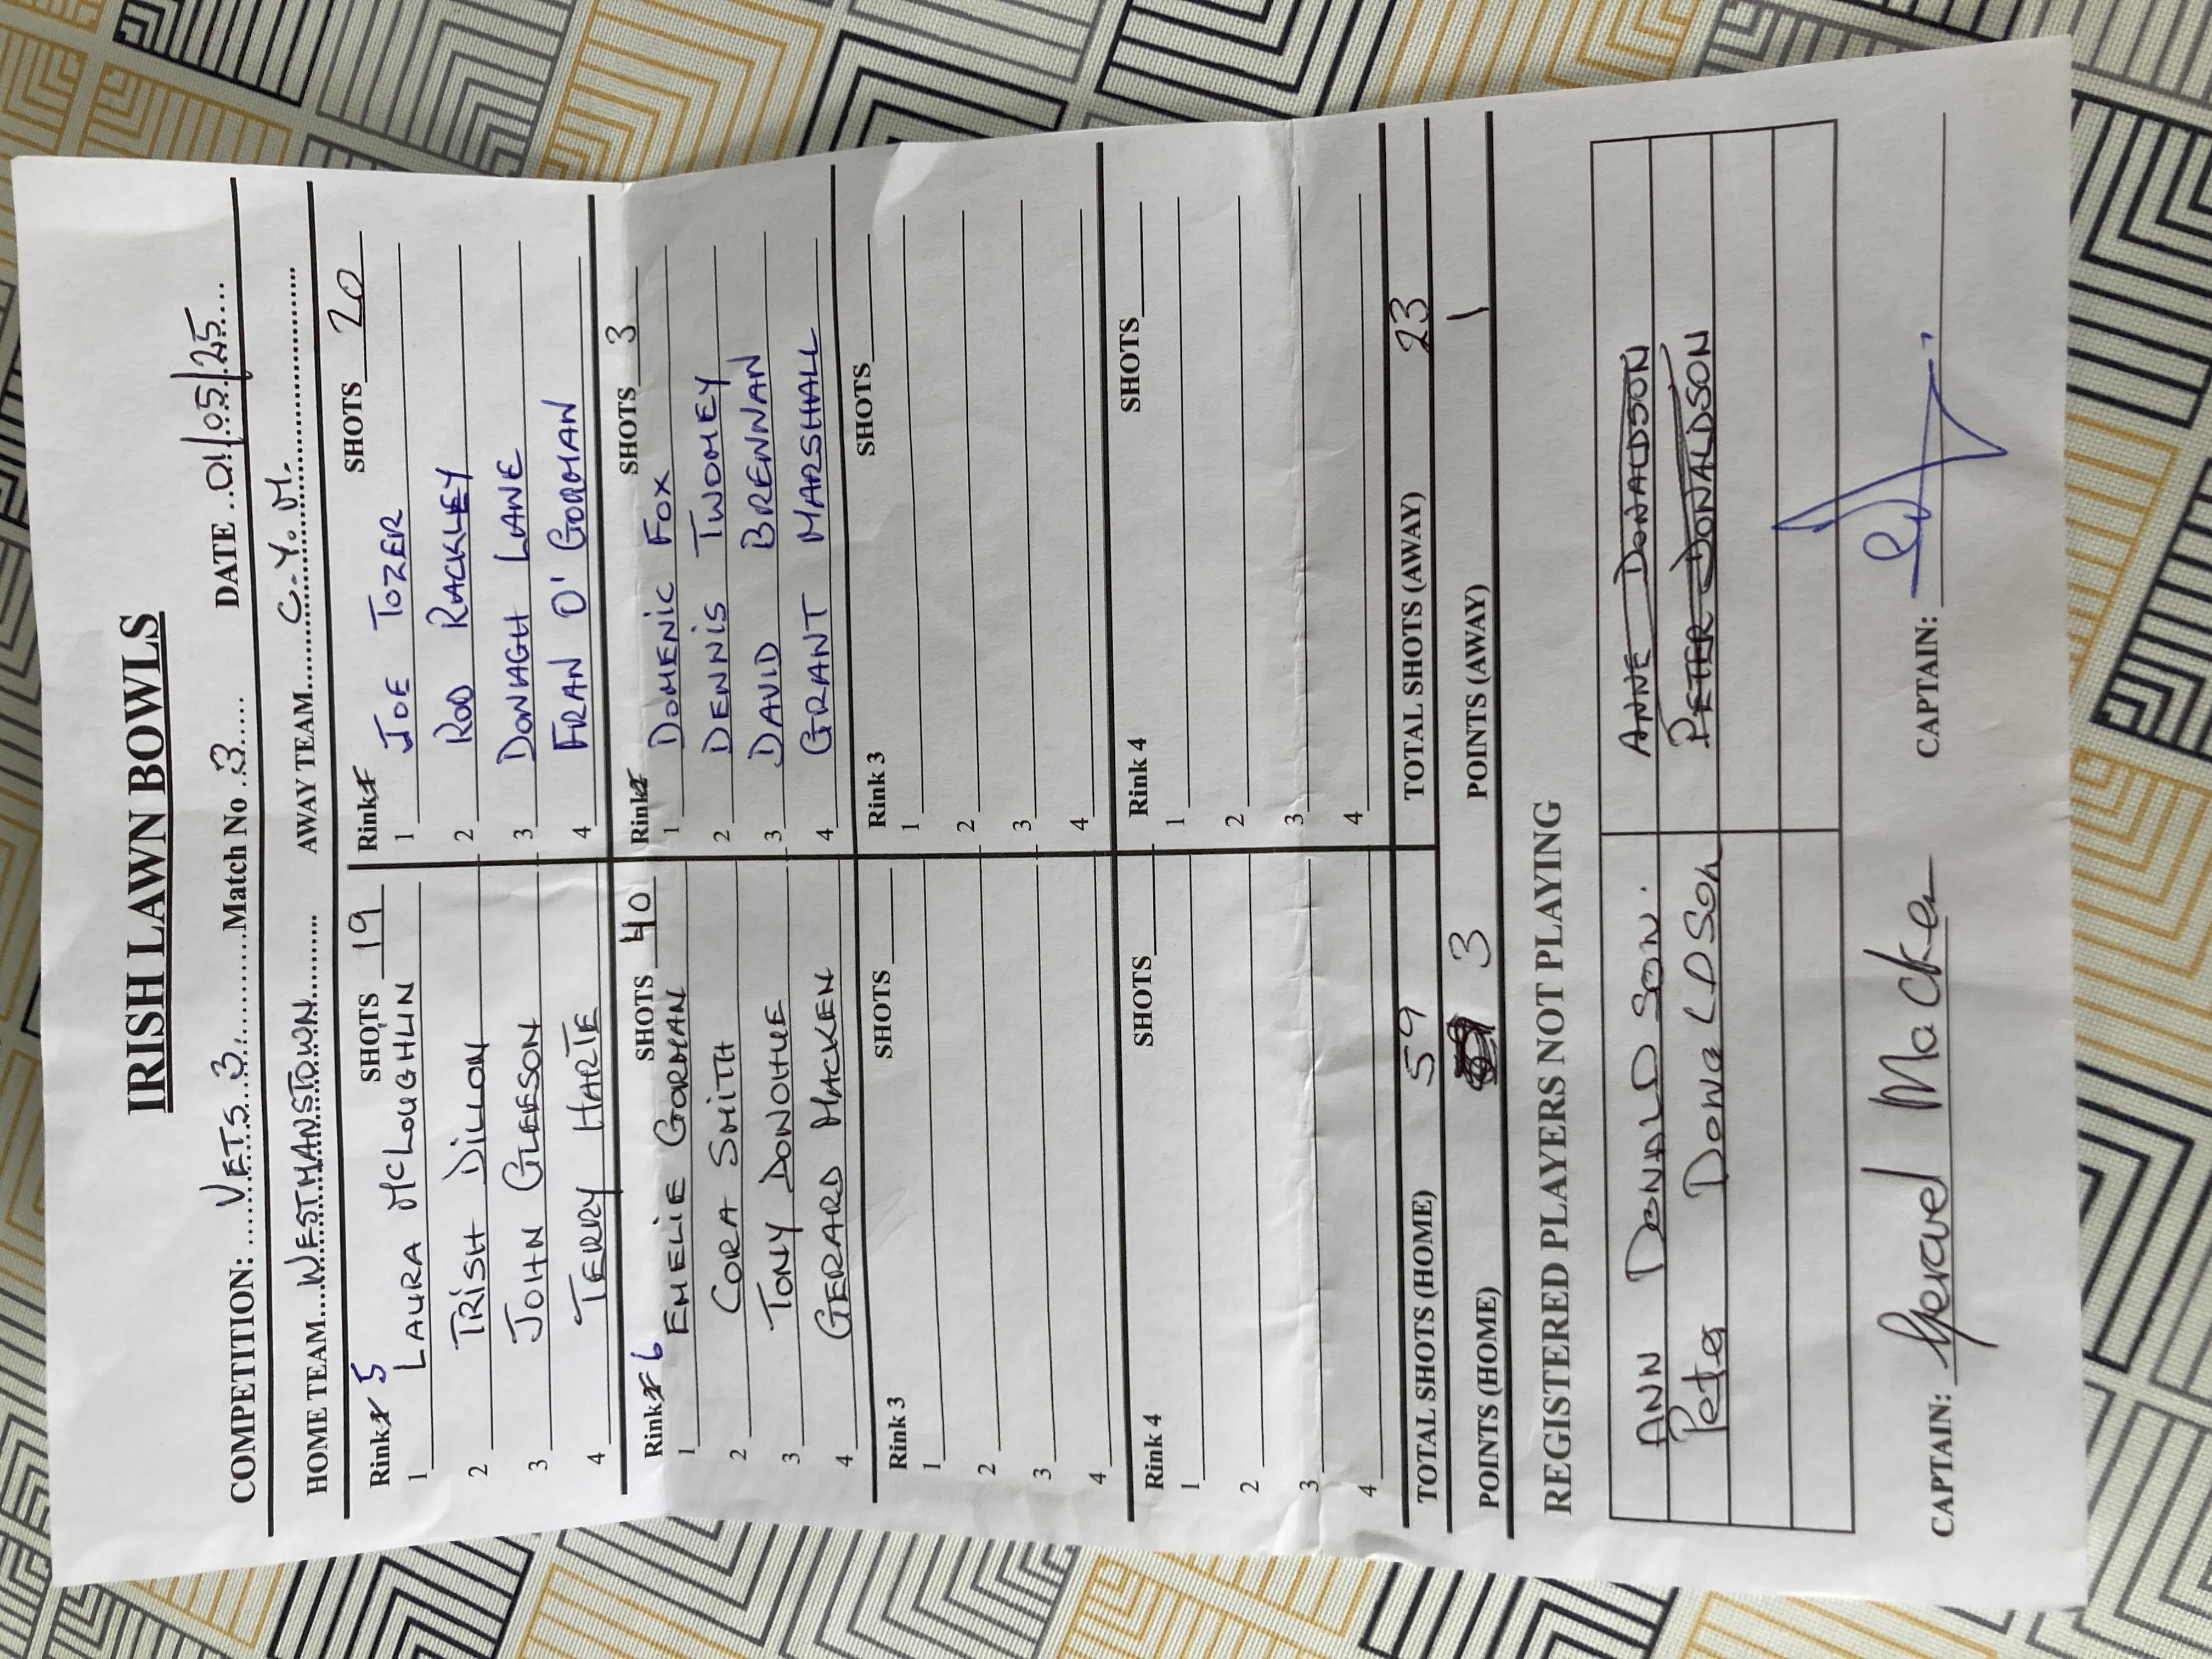 IRISH LAWN BOWLS
COMPETITION: VETS 3 Match No 3 DATE 01/05/25
HOME TEAM WESTMANSTOWN AWAY TEAM C.Y.M.
Rink 5 SHOTS 19 Rink SHOTS 20
1 LAURA MCLOUGHLIN 1 JOE TOZER
2 TRISH DILLON 2 ROD RACKLEY
3 JOHN GLEESON 3 DONAGH LANE
4 TERRY HARTE 4 FRAN O' GORMAN
Rink 6 SHOTS 40 Rink SHOTS 3
1 EMELIE GORMAN 1 DOMENIC FOX
2 CORA SMITH 2 DENNIS TWOMEY
3 TONY DONOHUE 3 DAVID BRENNAN
4 GERARD MACKEN 4 GRANT MARSHALL
Rink 3 SHOTS Rink 3 SHOTS
1 1
2 2
3 3
4 4
Rink 4 SHOTS Rink 4 SHOTS
1 1
2 2
3 3
4 4
TOTAL SHOTS (HOME) 59 TOTAL SHOTS (AWAY) 23
POINTS (HOME) 3 POINTS (AWAY) 1
REGISTERED PLAYERS NOT PLAYING
ANN DONALDSON. ANNE DONALDSON
Peter DonaLDSon PETER DONALDSON
CAPTAIN: Gerard Macken CAPTAIN: